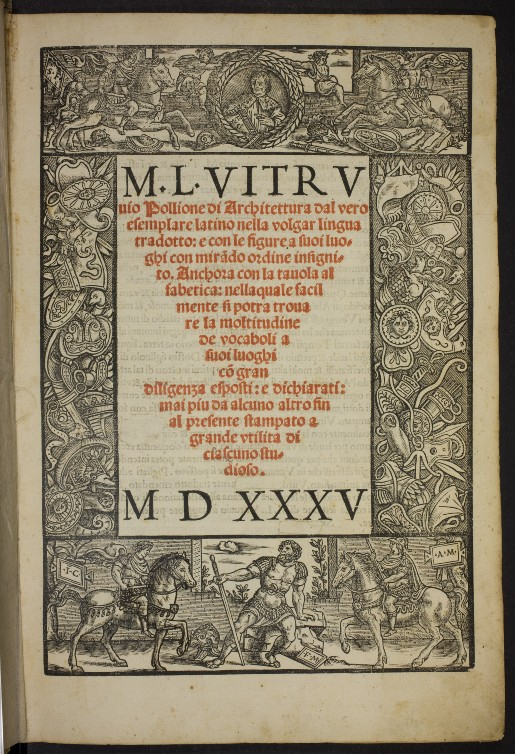 M. L. VITRV
uio Pollione di Architettura dal vero
esemplare latino nella volgar lingua
tradotto: e con le figure a suoi luo-
ghi con mirãdo ordine insigni-
to. Anchora con la tauola al
fabetica: nella quale facil
mente si potra troua
re la moltitudine
de vocaboli a
suoi luoghi
cõ gran
diligenza esposti: e dichiarati:
mai piu da alcuno altro fin
al presente stampato a
grande vtilita di
ciascuno stu-
dioso.
M D XXXV
·I·C·
·A·M·